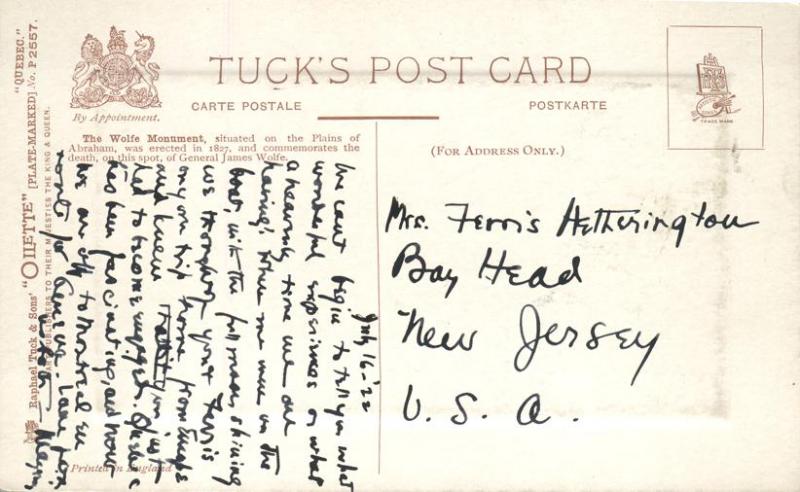 TUCK'S POST CARD
CARTE POSTALE
POSTKARTE
By Appointment.
TRADE MARK
The Wolfe Monument, situated on the Plains of
Abraham, was erected in 1827, and commemorates the
death, on this spot, of General James Wolfe.
(FOR ADDRESS ONLY.)
Mrs. Ferris Hetherington
Bay Head
New Jersey
U. S. A.
July 16 - '22
We can't begin to tell you what
wonderful experiences or what
a heavenly time we are
having! When we were on the
boat, with the full moon shining
us thought of you & Ferris
on your trip home from Europe
and knew just
had to become engaged. Quebec
has been fascinating, and now
we are off to Montreal en
route for Geneva - Lake
Raphael Tuck & Sons' "OILETTE" [PLATE-MARKED] No. P 2557.
"QUEBEC."
ART PUBLISHERS TO THEIR MAJESTIES THE KING & QUEEN.
Printed in England